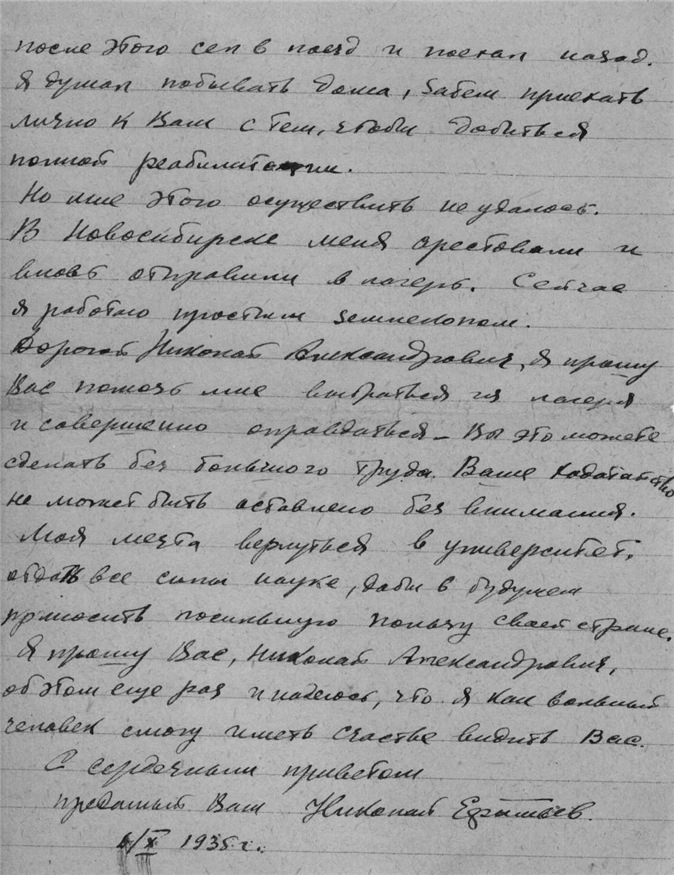 после этого сел в поезд и поехал назад.
Я думал побывать дома, затем приехать
лично к Вам с тем, чтобы добиться
полной реабилитации.
Но мне этого осуществить не удалось.
В Новосибирске меня арестовали и
вновь отправили в лагерь. Сейчас
я работаю простым землекопом.
Дорогой Николай Александрович, я прошу
Вас помочь мне выбраться из лагеря
и совершенно оправдаться – Вы это можете
сделать без большого труда. Ваше ходатайство
не может быть оставлено без внимания.
Моя мечта вернуться в университет,
отдать все силы науке, дабы в будущем
приносить посильную пользу своей стране.
Я прошу Вас, Николай Александрович,
об этом еще раз и надеюсь, что я как вольный
человек смогу иметь счастье видить Вас.
С сердечным приветом
преданный Вам Николай
6/X 1935 г.